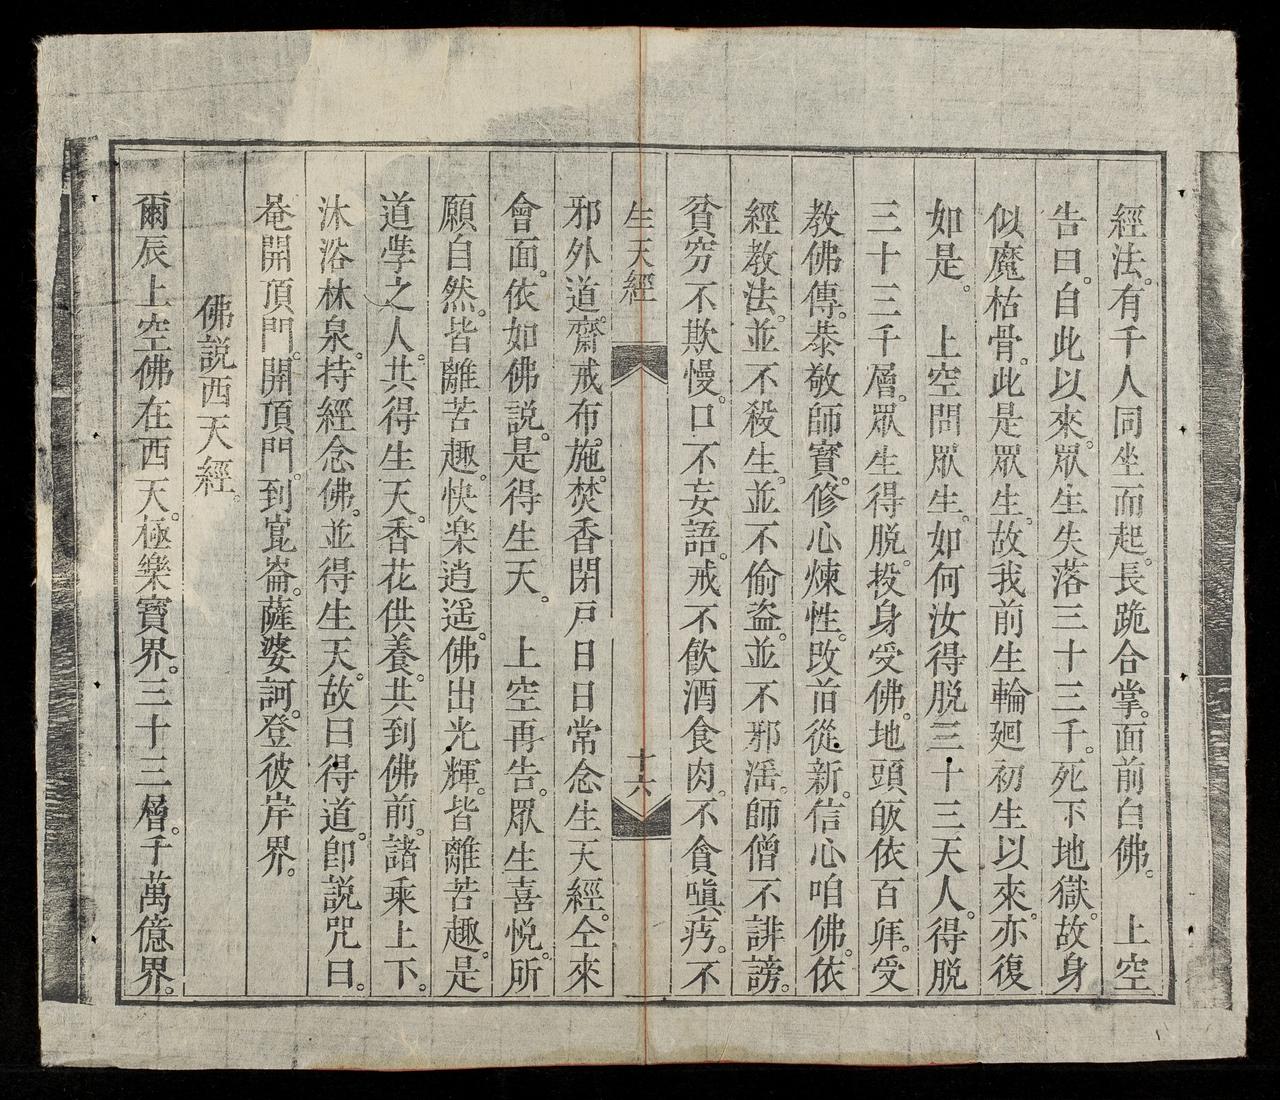 經法。有千人同坐而起。長跪合掌。面前白佛。　上空
告曰。自此以來。眾生失落三十三千。死下地獄。故身
似魔枯骨。此是眾生。故我前生輪廻初生以來。亦復
如是。　上空問眾生。如何汝得脱三十三天人。得脱
三十三千層。眾生得脱。投身受佛。地頭皈依百拜。受
教佛傳。恭敬師寳。修心煉性。改舊從新。信心咱佛。依
經教法。並不殺生。並不偷盗。並不邪滛。師僧不誹謗。
貧穷不欺慢。口不妄語。戒不飲酒食肉。不貪嗔痴。不
生天經
十六
邪外道。齋戒布施。焚香閉戸日日常念生天經。仝來
會面。依如佛説。是得生天。　上空再告。眾生喜悦。所
願自然。皆離苦趣。快楽逍遥。佛出光輝。皆離苦趣。是
道學之人。共得生天。香花供養。共到佛前。諸乘上下。
沐浴林泉。持經念佛。並得生天。故曰得道。卽説咒曰。
菴開頂門。開頂門。到崑崙。薩婆訶。登彼岸界。
佛説西天經。
爾辰上空佛在西天。極樂寳界。三十三層。千萬億界。